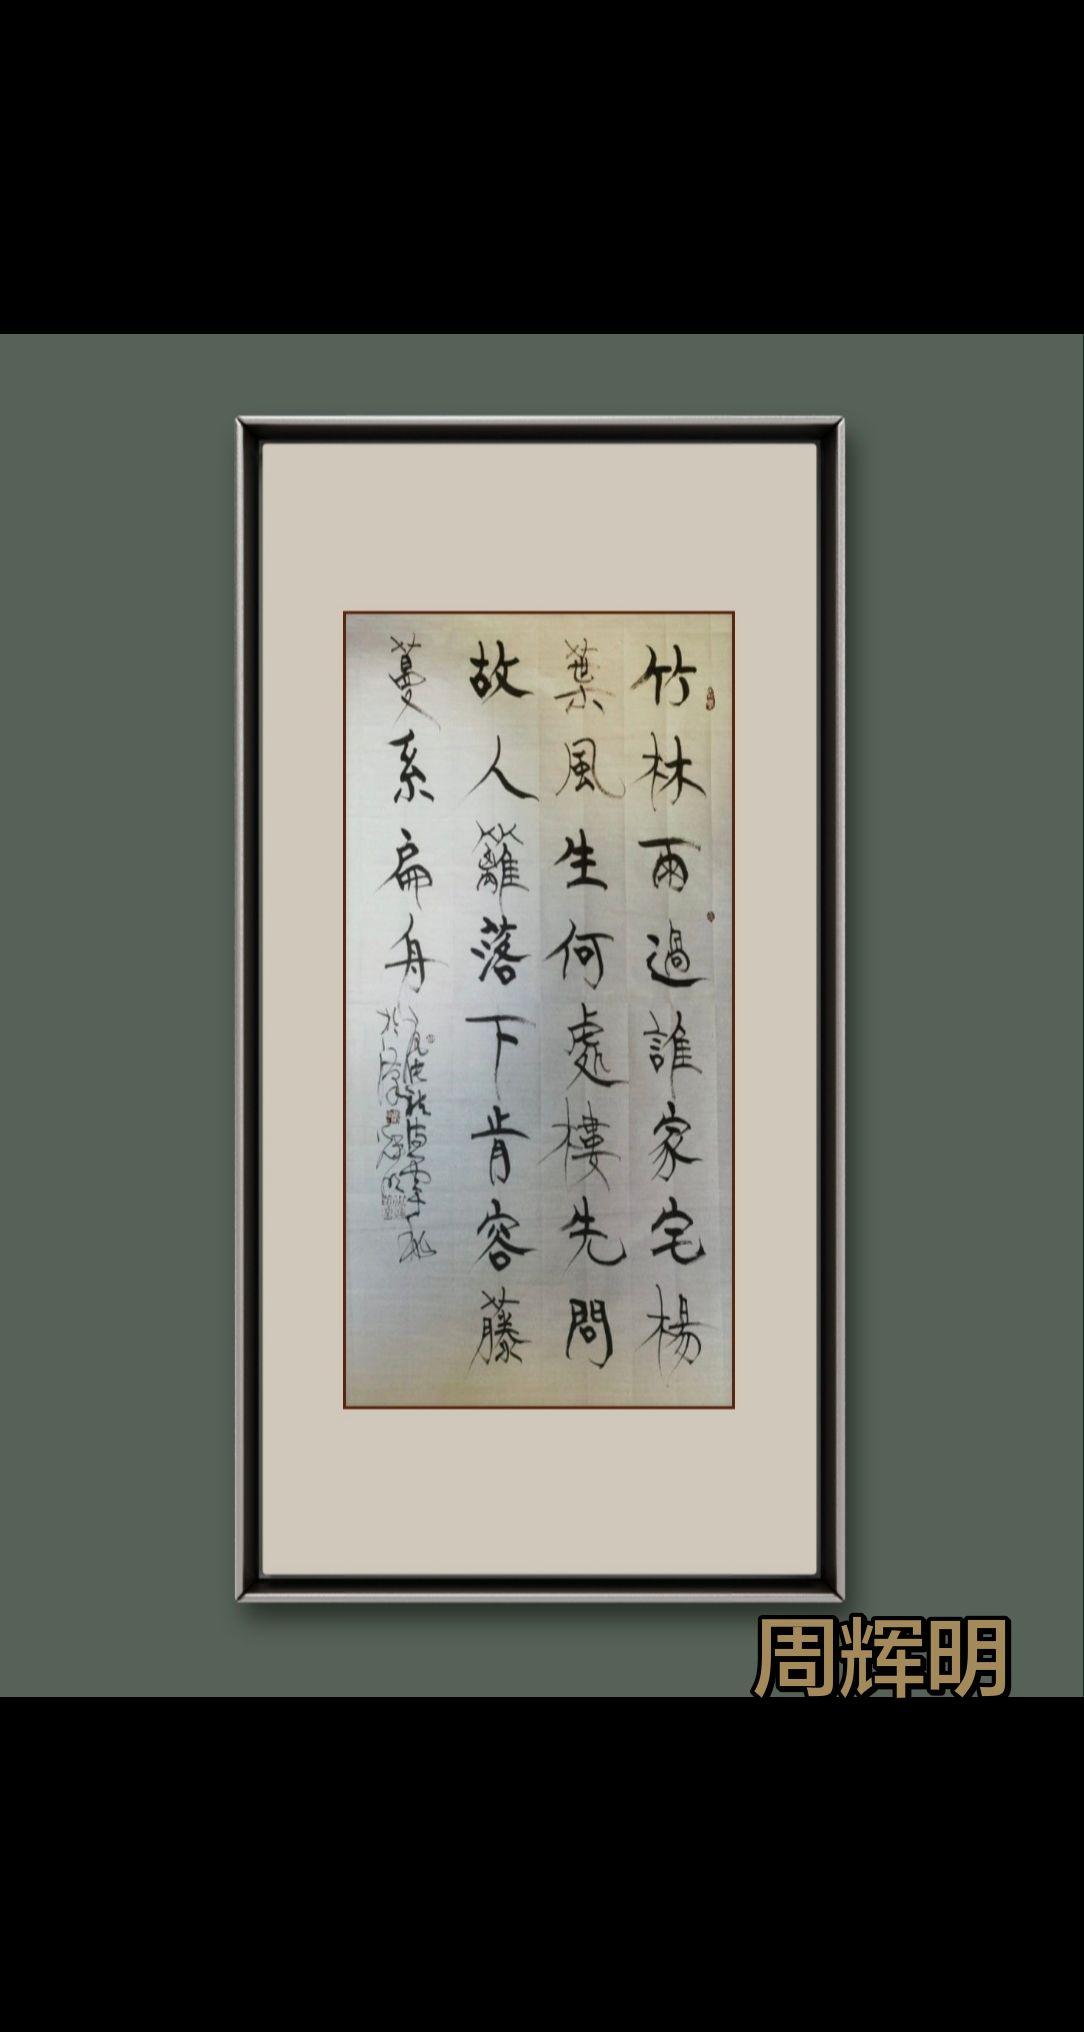 竹林雨過誰家宅楊
葉風生何處樓先問
故人籬落下肯容藤
蔓系扁舟
周辉明